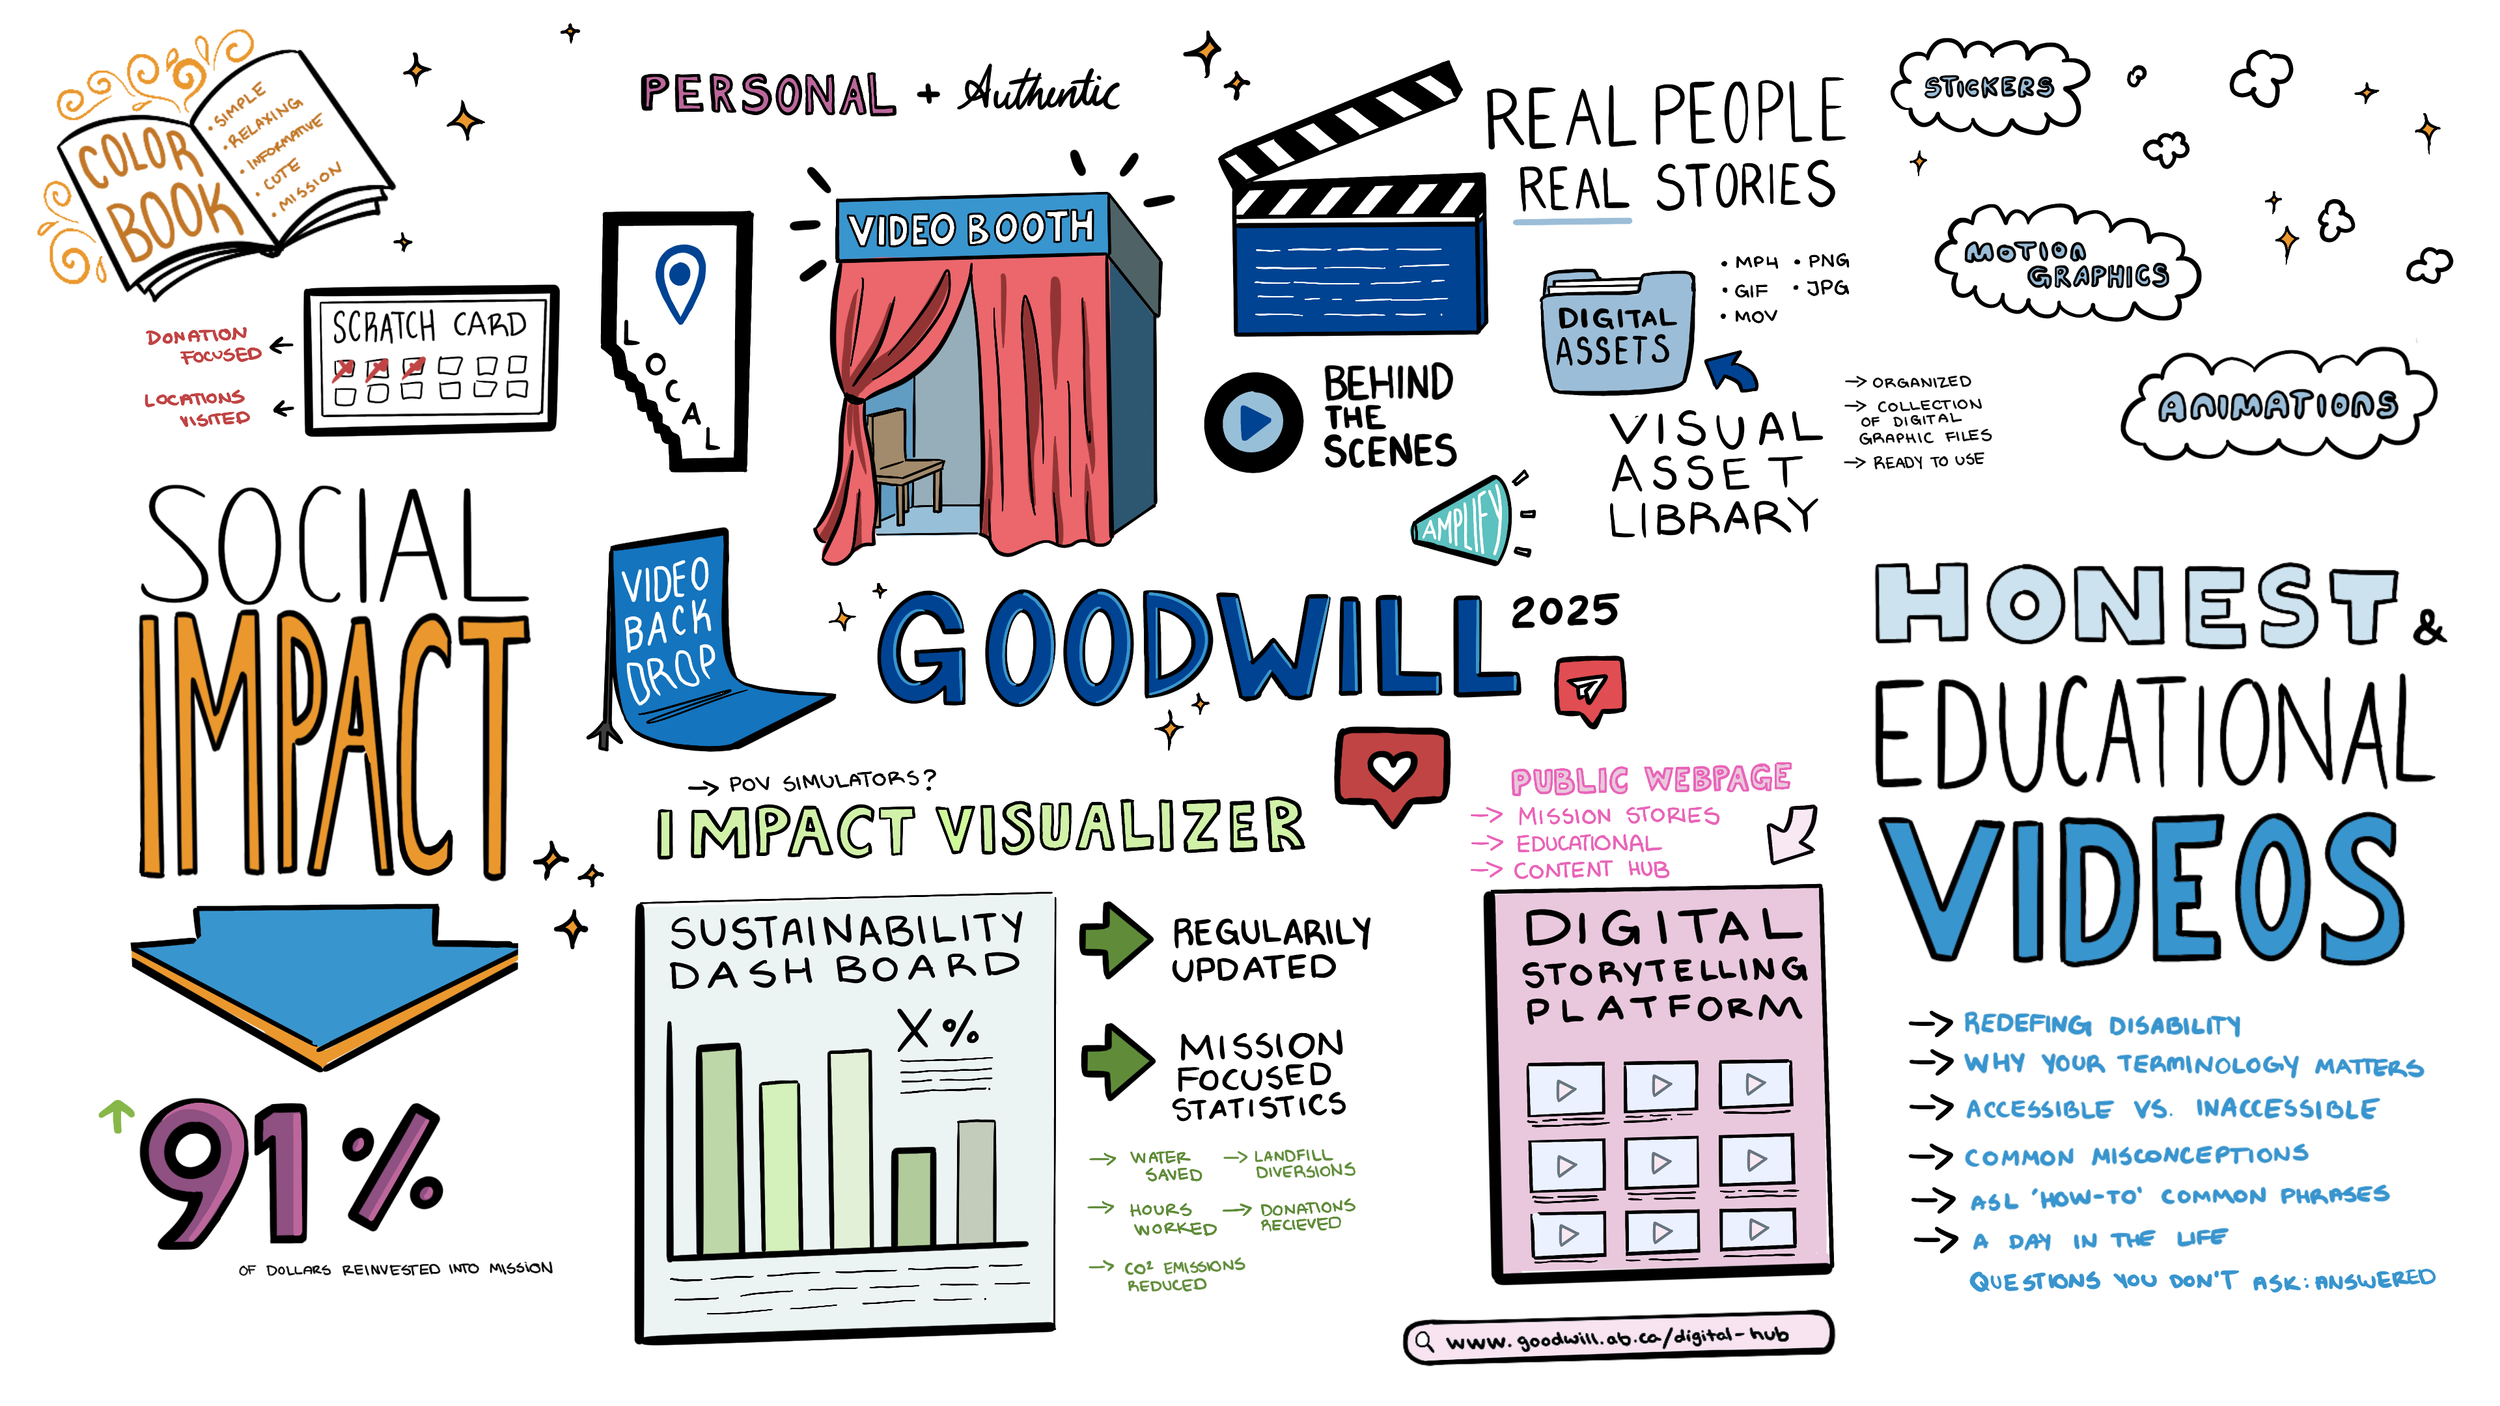 COLOR
BOOK
• SIMPLE
• RELAXING
• INFORMATIVE
• CUTE
• MISSION
SCRATCH CARD
DONATION
FOCUSED
LOCATIONS
VISITED
SOCIAL
IMPACT
91%
OF DOLLARS REINVESTED INTO MISSION
PERSONAL + Authentic
LOCAL
VIDEO BOOTH
VIDEO
BACK
DROP
GOODWILL 2025
→ POV SIMULATORS?
IMPACT VISUALIZER
SUSTAINABILITY
DASH BOARD
X%
REGULARILY
UPDATED
MISSION
FOCUSED
STATISTICS
→ WATER
SAVED
→ LANDFILL
DIVERSIONS
→ HOURS
WORKED
→ DONATIONS
RECIEVED
→ CO² EMISSIONS
REDUCED
REAL PEOPLE
REAL STORIES
BEHIND
THE
SCENES
AMPLIFY
DIGITAL
ASSETS
• MP4 • PNG
• GIF • JPG
• MOV
VISUAL
ASSET
LIBRARY
→ ORGANIZED
→ COLLECTION
OF DIGITAL
GRAPHIC FILES
→ READY TO USE
STICKERS
MOTION
GRAPHICS
ANIMATIONS
PUBLIC WEBPAGE
→ MISSION STORIES
→ EDUCATIONAL
→ CONTENT HUB
DIGITAL
STORYTELLING
PLATFORM
www.goodwill.ab.ca/digital-hub
HONEST &
EDUCATIONAL
VIDEOS
→ REDEFING DISABILITY
→ WHY YOUR TERMINOLOGY MATTERS
→ ACCESSIBLE VS. INACCESSIBLE
→ COMMON MISCONCEPTIONS
→ ASL 'HOW-TO' COMMON PHRASES
→ A DAY IN THE LIFE
QUESTIONS YOU DON'T ASK: ANSWERED